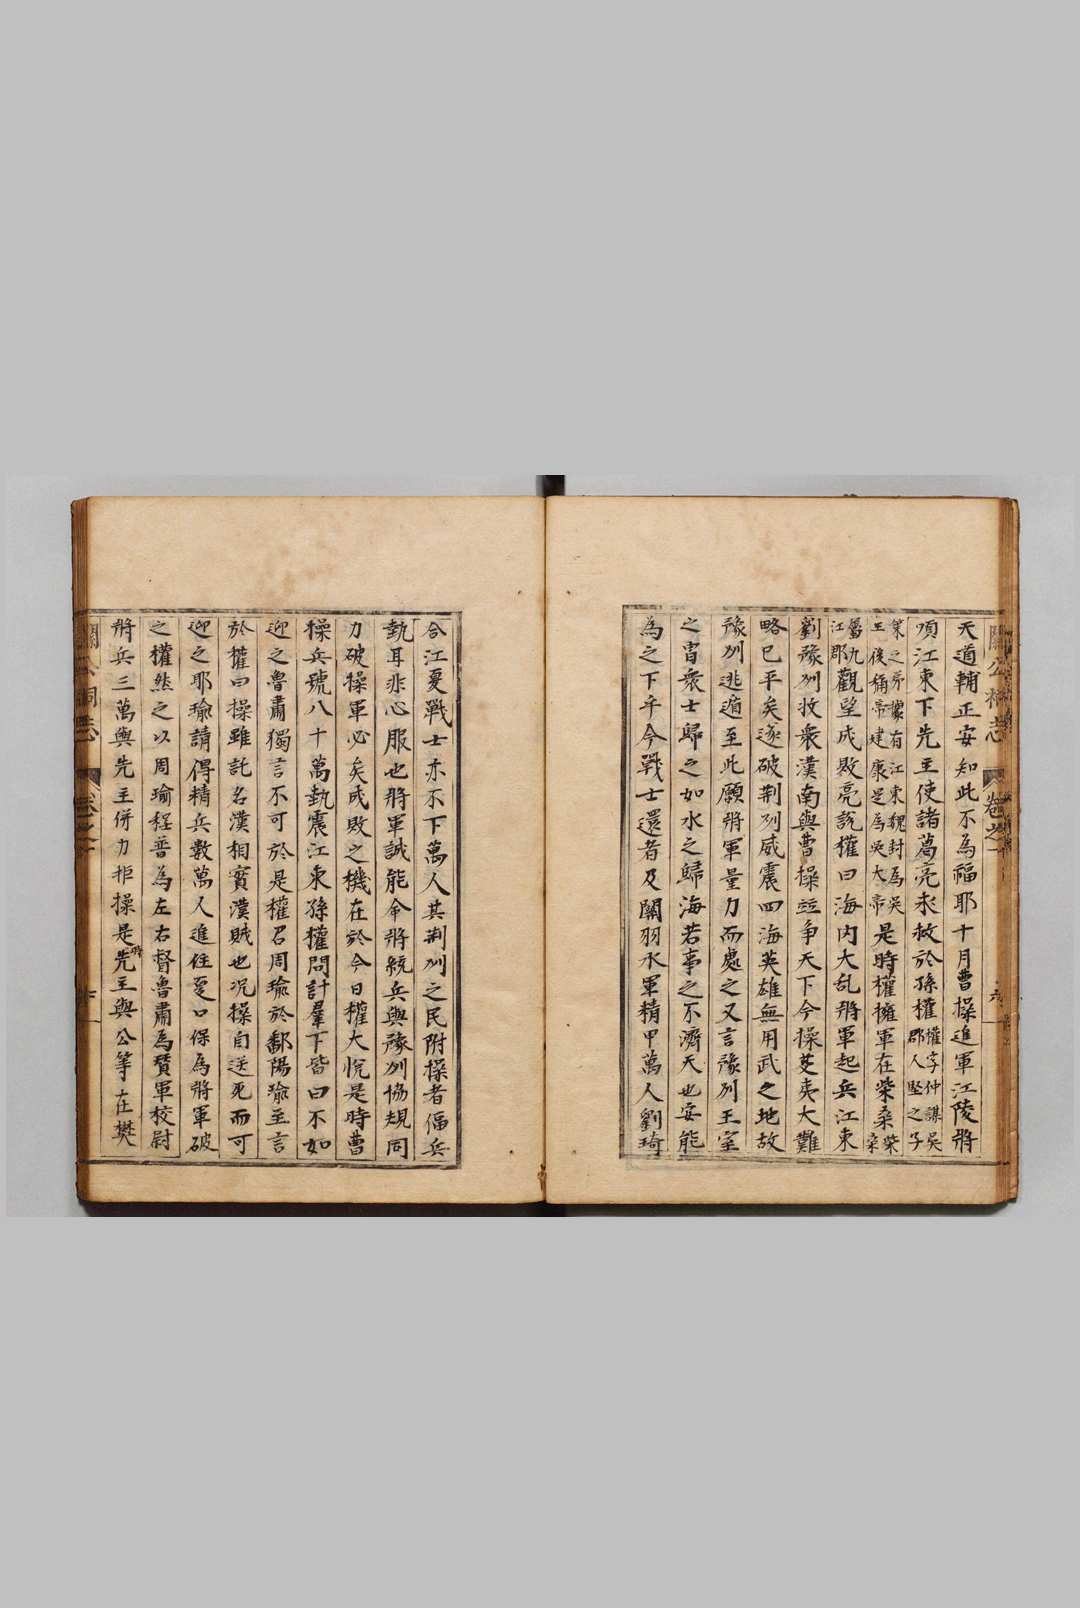 天道輔正安知此不為福耶十月曹操進軍江陵將
順江東下先主使諸葛亮求救於孫權權字仲謀吳郡人堅之子
策之弟據有江東魏封為吳王後稱帝建康是為吳大帝是時權擁軍在柴桑柴桑
屬九江郡觀望成敗亮說權曰海內大乱將軍起兵江東
劉豫州收衆漢南與曹操並争天下今操芟夷大難
略已平矣遂破荆州威震四海英雄無用武之地故
豫州逃遁至此願將軍量力而處之又言豫州王室
之胄衆士歸之如水之歸海若事之不濟天也安能
為之下乎今戰士還者及關羽水軍精甲萬人劉琦
合江夏戰士亦不下萬人其荆州之民附操者偪兵
埶耳非心服也將軍誠能命將統兵與豫州協規同
力破操軍必矣成敗之機在於今日權大悅是時曹
操兵號八十萬埶震江東孫權問計羣下皆曰不如
迎之魯肅獨言不可於是權召周瑜於鄱陽瑜至言
於權曰操雖託名漢相實漢賊也况操自送死而可
迎之耶瑜請得精兵數萬人進住夏口保為將軍破
之權然之以周瑜程普為左右督魯肅為贊軍校尉
將兵三萬與先主併力拒操是時先主與公等在樊
關公祠志
卷之一
六